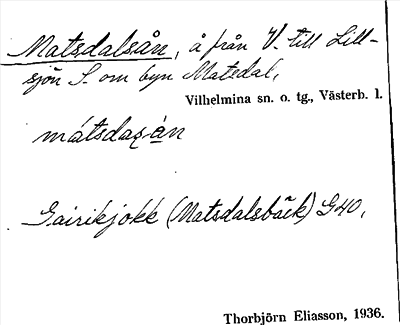 Matsdalsån, å från V. till Lill-
sjön S. om byn Matsdal,
Vilhelmina sn. o. tg., Västerb. l.
mátsdaʐạ́n
Gairikjokk (Matsdalsbäck) G40,
Thorbjörn Eliasson, 1936.